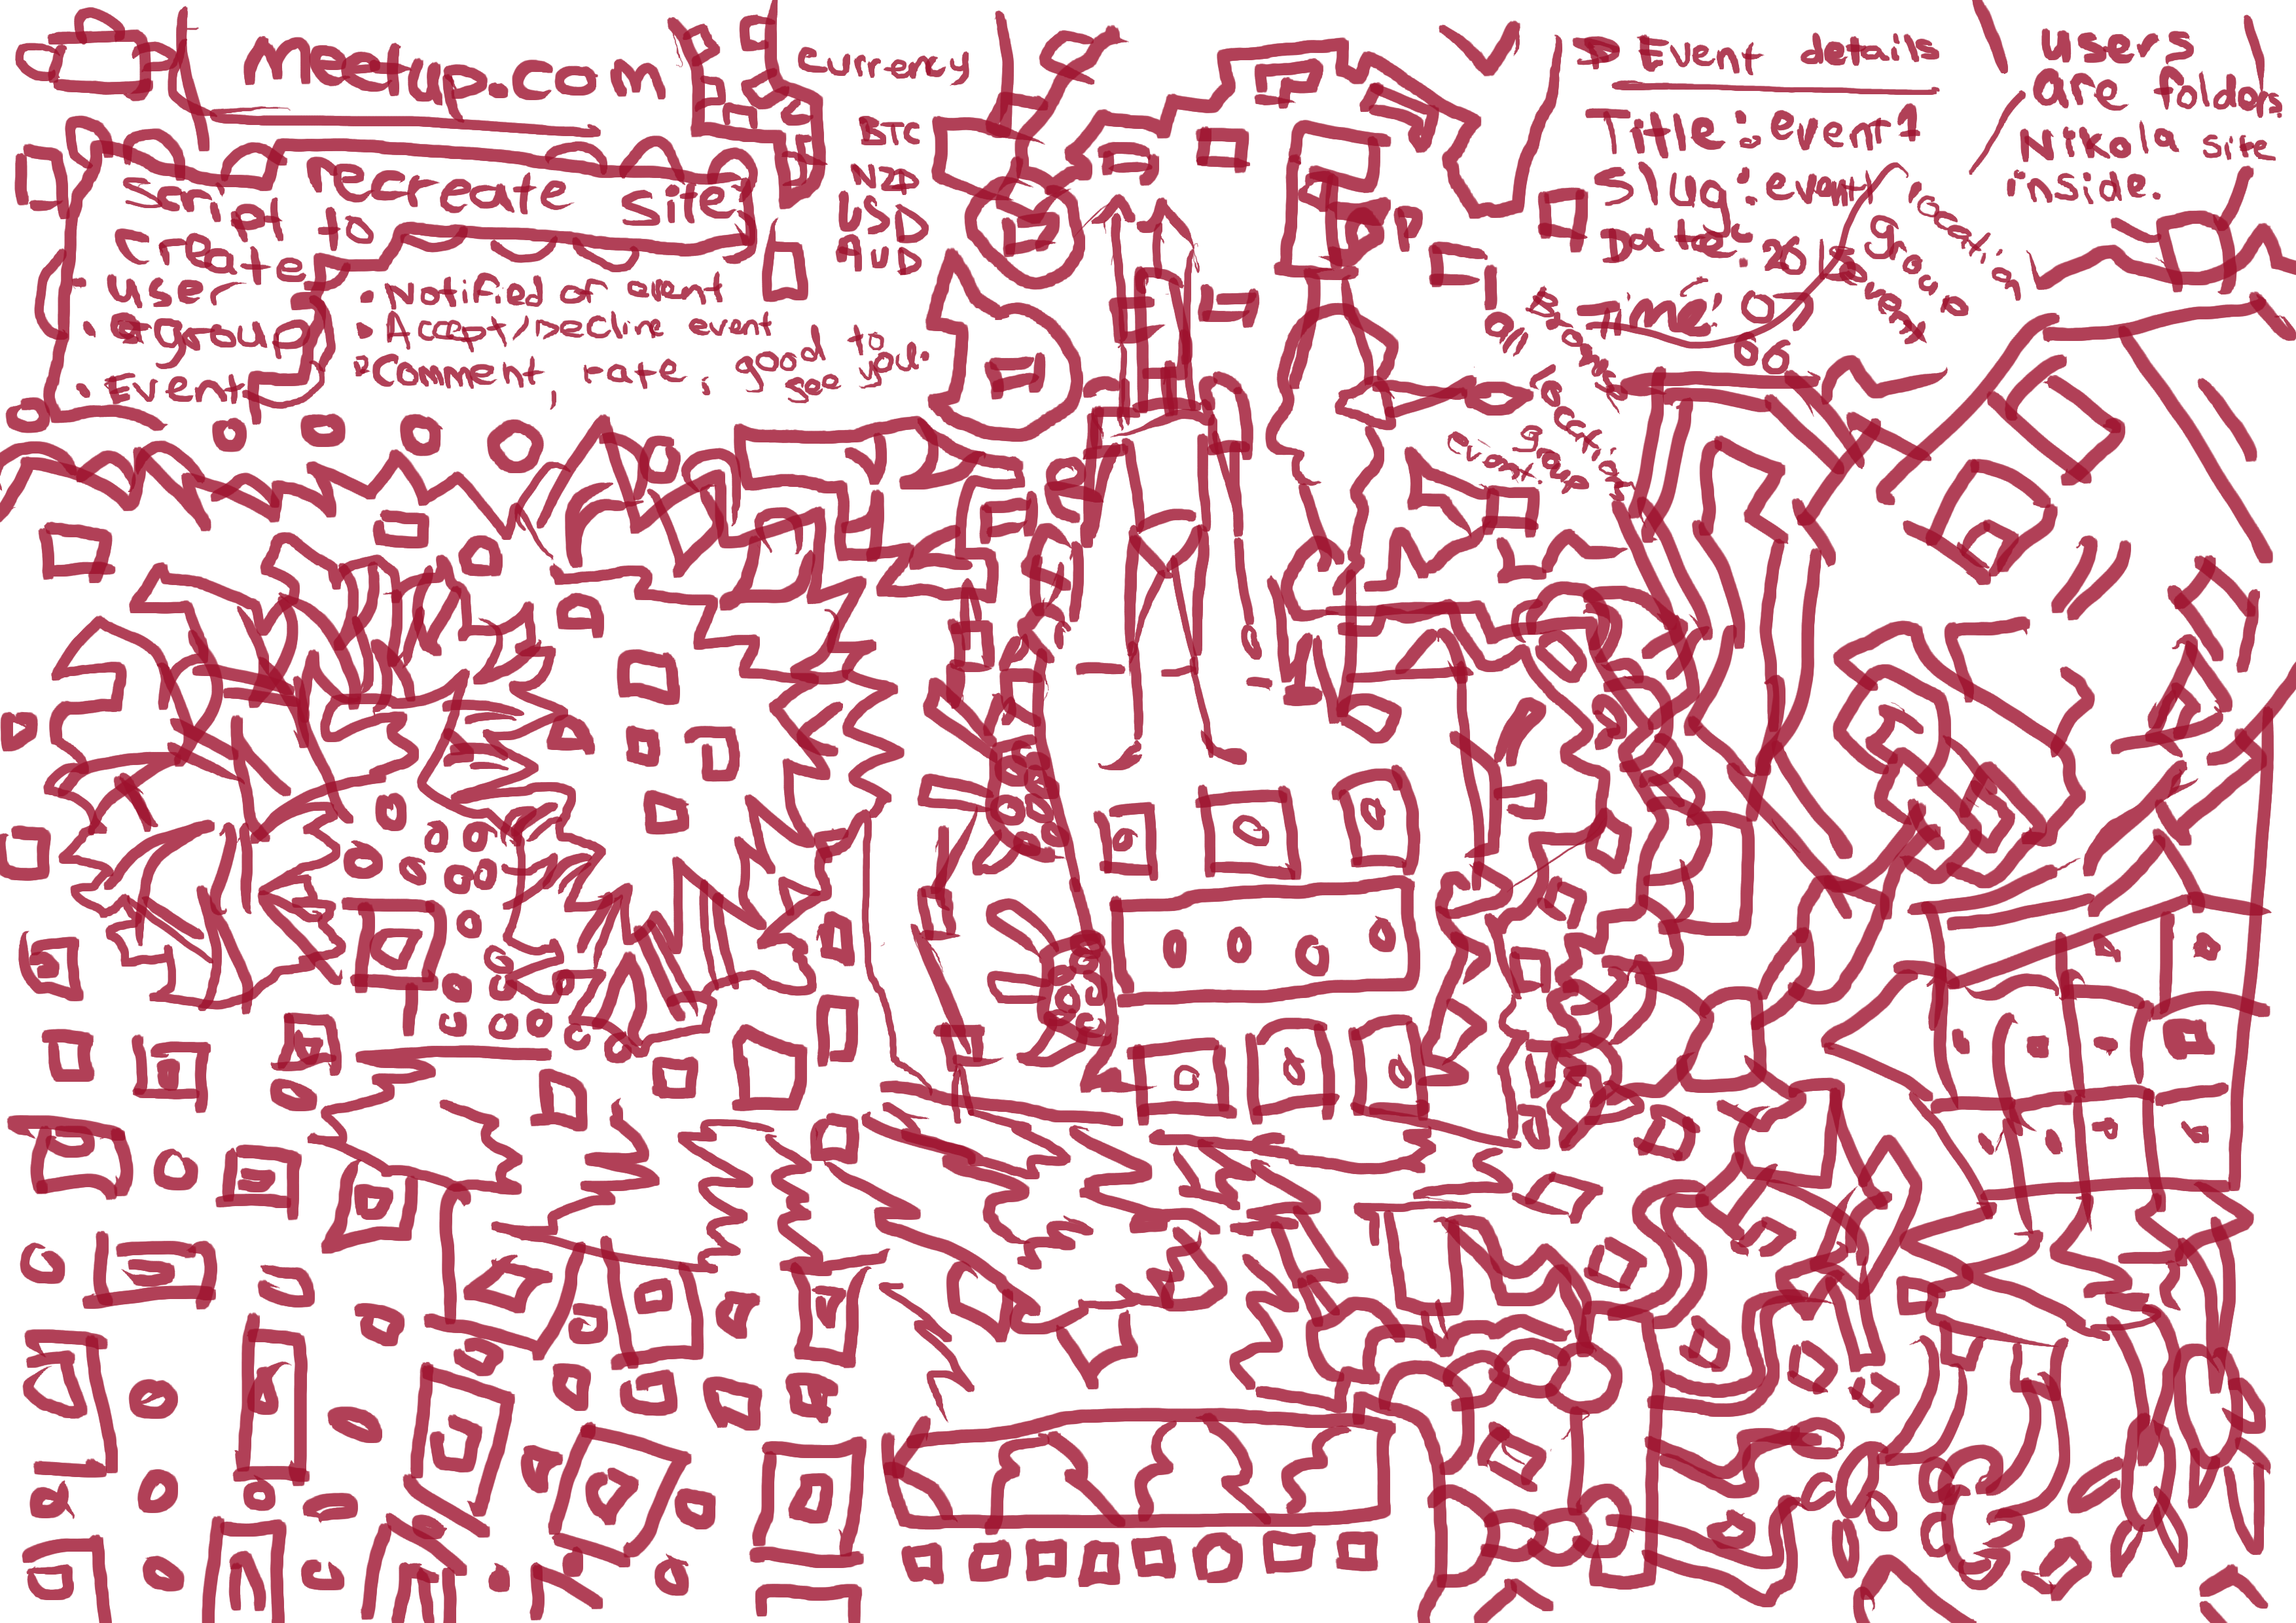 Meetup.com
Script to recreate site
Create
• User
• group
• Event
• Notified of event
• Accept/Decline event
• Comment, rate, good to see you.
Currency
BTC
NZD
USD
AUD
Event details
Title: event1
Slug: event1
Date: 2018
Time: 07
06
location
group
event
location
group
event
Users
are folders
Nikola site
inside.